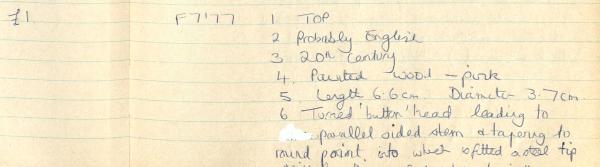 £1 F7'77 1 TOP
2 Probably English
3 20th Century
4. Painted wood - pink
5 Length 6.6cm. Diameter 3.7cm.
6 Turned 'button' head leading to
parallel sided stem & tapering to
round point into which is fitted a steel tip